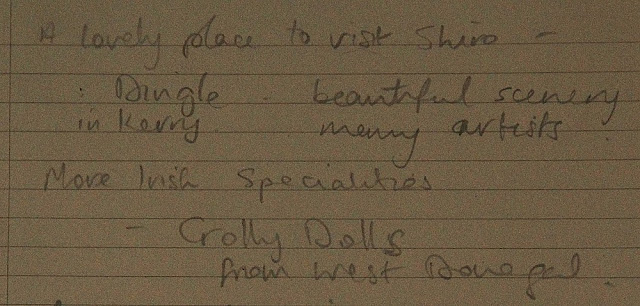 A lovely place to visit Shiro -
: Dingle - beautiful scenery
in Kerry. many artists.
More Irish Specialities
- Crolly Dolls
from West Donegal.